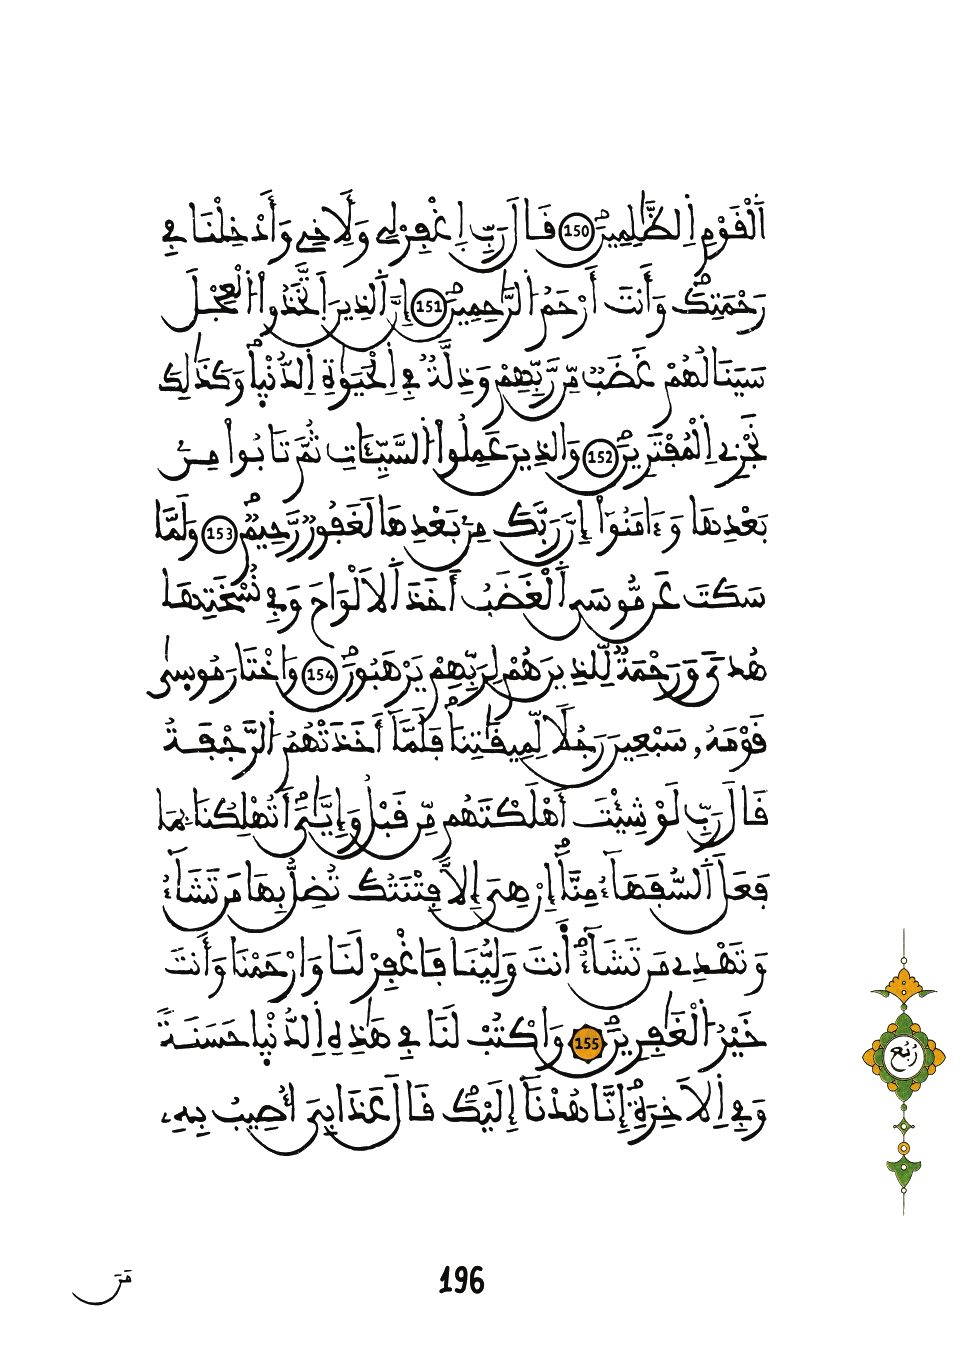 اَ۬لْقَوْمِ اِ۬لظَّٰلِمِينَۖ 150 قَالَ رَبِّ اِ۪غْفِرْ لِے وَلَأَخِے وَأَدْخِلْنَا فِے
رَحْمَتِكَۖ وَأَنتَ أَرْحَمُ اُ۬لرَّٰحِمِينَۖ 151 إِنَّ اَ۬لذِينَ اَ۪تَّخَذُواْ اُ۬لْعِجْلَ
سَيَنَالُهُمْ غَضَبٞ مِّن رَّبِّهِمْ وَذِلَّةٞ فِے اِ۬لْحَيَوٰةِ اِ۬لدُّنْي۪اۖ وَكَذَٰلِكَ
نَجْزِے اِ۬لْمُفْتَرِينَۖ 152 وَالذِينَ عَمِلُواْ اُ۬لسَّيِّـَٔاتِ ثُمَّ تَابُواْ مِنۢ
بَعْدِهَا وَءَامَنُوٓاْ إِنَّ رَبَّكَ مِنۢ بَعْدِهَا لَغَفُورٞ رَّحِيمٞۖ 153 وَلَمَّا
سَكَتَ عَن مُّوسَي اَ۬لْغَضَبُ أَخَذَ اَ۬لَالْوَاحَ وَفِے نُسْخَتِهَا
هُديٗ وَرَحْمَةٞ لِّلذِينَ هُمْ لِرَبِّهِمْ يَرْهَبُونَۖ 154 وَاخْتَارَ مُوس۪يٰ
قَوْمَهُۥ سَبْعِينَ رَجُلٗا لِّمِيقَٰتِنَاۖ فَلَمَّآ أَخَذَتْهُمُ اُ۬لرَّجْفَةُ
قَالَ رَبِّ لَوْ شِئْتَ أَهْلَكْتَهُم مِّن قَبْلُ وَإِيَّٰيَۖ أَتُهْلِكُنَا بِمَا
فَعَلَ اَ۬لسُّفَهَآءُ مِنَّآۖ إِنْ هِيَ إِلَّا فِتْنَتُكَ تُضِلُّ بِهَا مَن تَشَآءُ
وَتَهْدِے مَن تَشَآءُۖ ا۬نتَ وَلِيُّنَا فَاغْفِرْ لَنَا وَارْحَمْنَا وَأَنتَ
خَيْرُ اُ۬لْغَٰفِرِينَۖ 155 وَاكْتُبْ لَنَا فِے هَٰذِهِ اِ۬لدُّنْي۪ا حَسَنَةٗ
وَفِے اِ۬لَاخِرَةِۖ إِنَّا هُدْنَآ إِلَيْكَۖ قَالَ عَذَابِيَ أُصِيبُ بِهِۦ
رُبُع
196
مَنَ